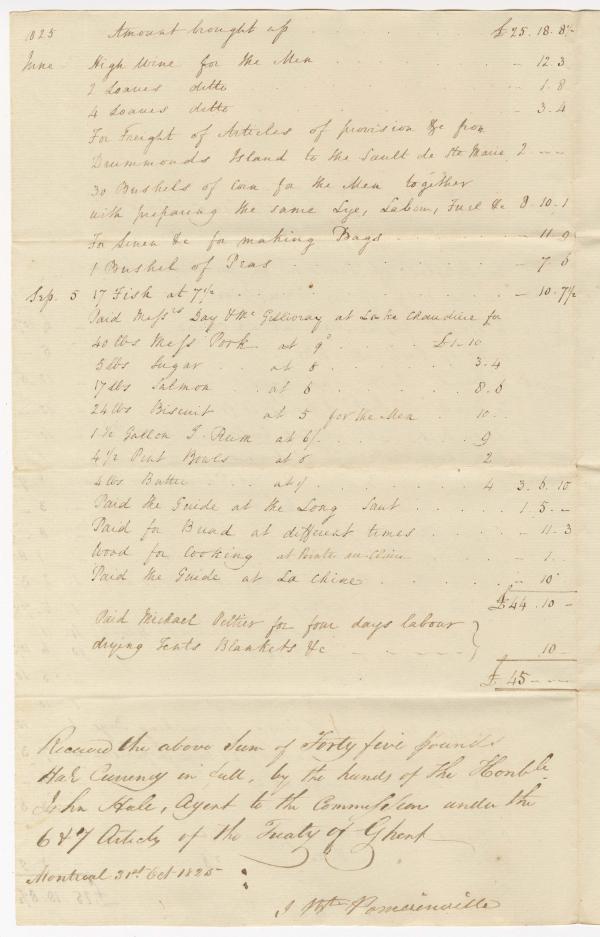 1825 Amount brought up £25. 18. 8½
June High Wine for the Men - 12. 3
2 Loaves ditto - 1. 8
4 Loaves ditto - 3. 4
For Freight of Articles of provision &c from
Drummonds Island to the Sault de Ste Marie 2 - - -
30 Bushels of Corn for the Men together
with preparing the same Lye, Labour, Fuel &c 8. 10. 1
For Linen &c for making Bags - 11. 9
1 Bushel of Peas - 7. 6
Sep. 5 17 Fish at 7½ - 10. 7½
Paid Messrs Day & Mc Gillivray at Lake Chaudiere for
40 lbs Mess Pork at 9d £1. 10
5 lbs Sugar at 8 3. 4
17 lbs Salmon at 6 8. 6
24 lbs Biscuit at 5 for the Men 10
1½ Gallon J. Rum at 6/. 9
4½ Pint Bowls at 6 2
4 lbs Butter at 1/ 4 3. 6. 10
Paid the Guide at the Long Saut 1. 5. -
Paid for Bread at different times - 11. 3
Wood for Cooking at - 1
Paid the Guide at La Chine - 10
£44. 10 -
Paid Michael Peltier for four days labour
drying Tents Blankets &c 10 -
£. 45 - - -
Received the above Sum of Forty five pounds
Hal. Currency in full, by the hands of the Honble.
John Hale, Agent to the Commission under the
6 & 7 Article of the Treaty of Ghent
Montreal 31st Oct 1825
J Bte Pomainville